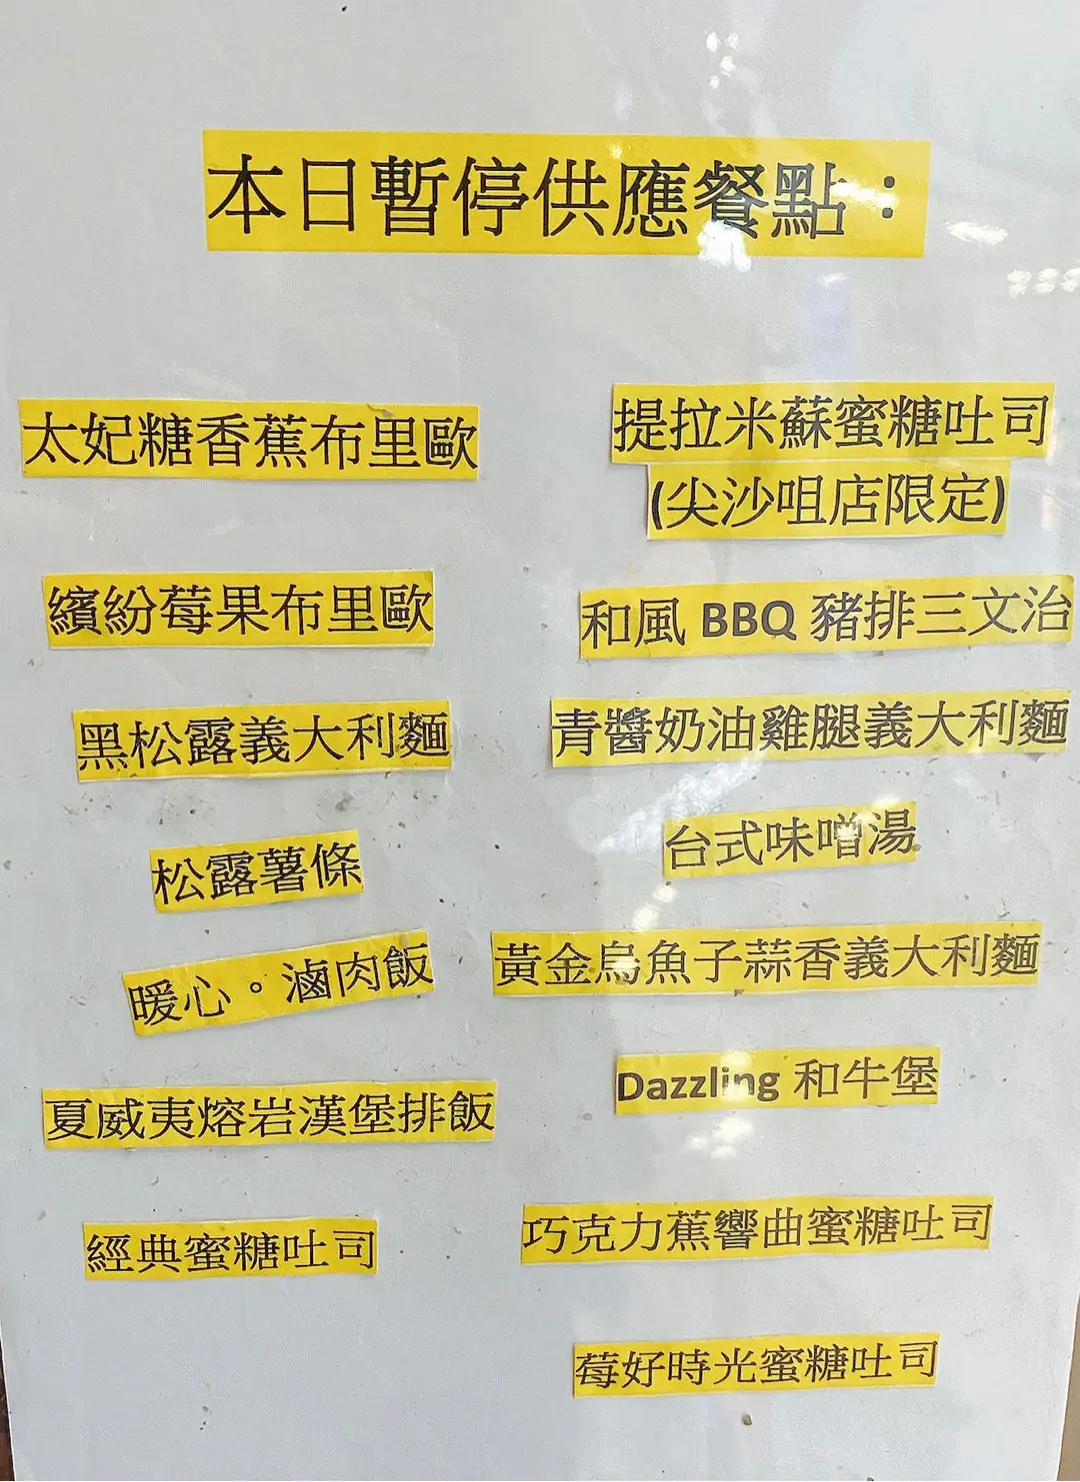 本日暫停供應餐點：
太妃糖香蕉布里歐
繽紛莓果布里歐
黑松露義大利麵
松露薯條
暖心。滷肉飯
夏威夷熔岩漢堡排飯
經典蜜糖吐司
提拉米蘇蜜糖吐司
(尖沙咀店限定)
和風 BBQ 豬排三文治
青醬奶油雞腿義大利麵
台式味噌湯
黃金烏魚子蒜香義大利麵
Dazzling 和牛堡
巧克力蕉響曲蜜糖吐司
莓好時光蜜糖吐司